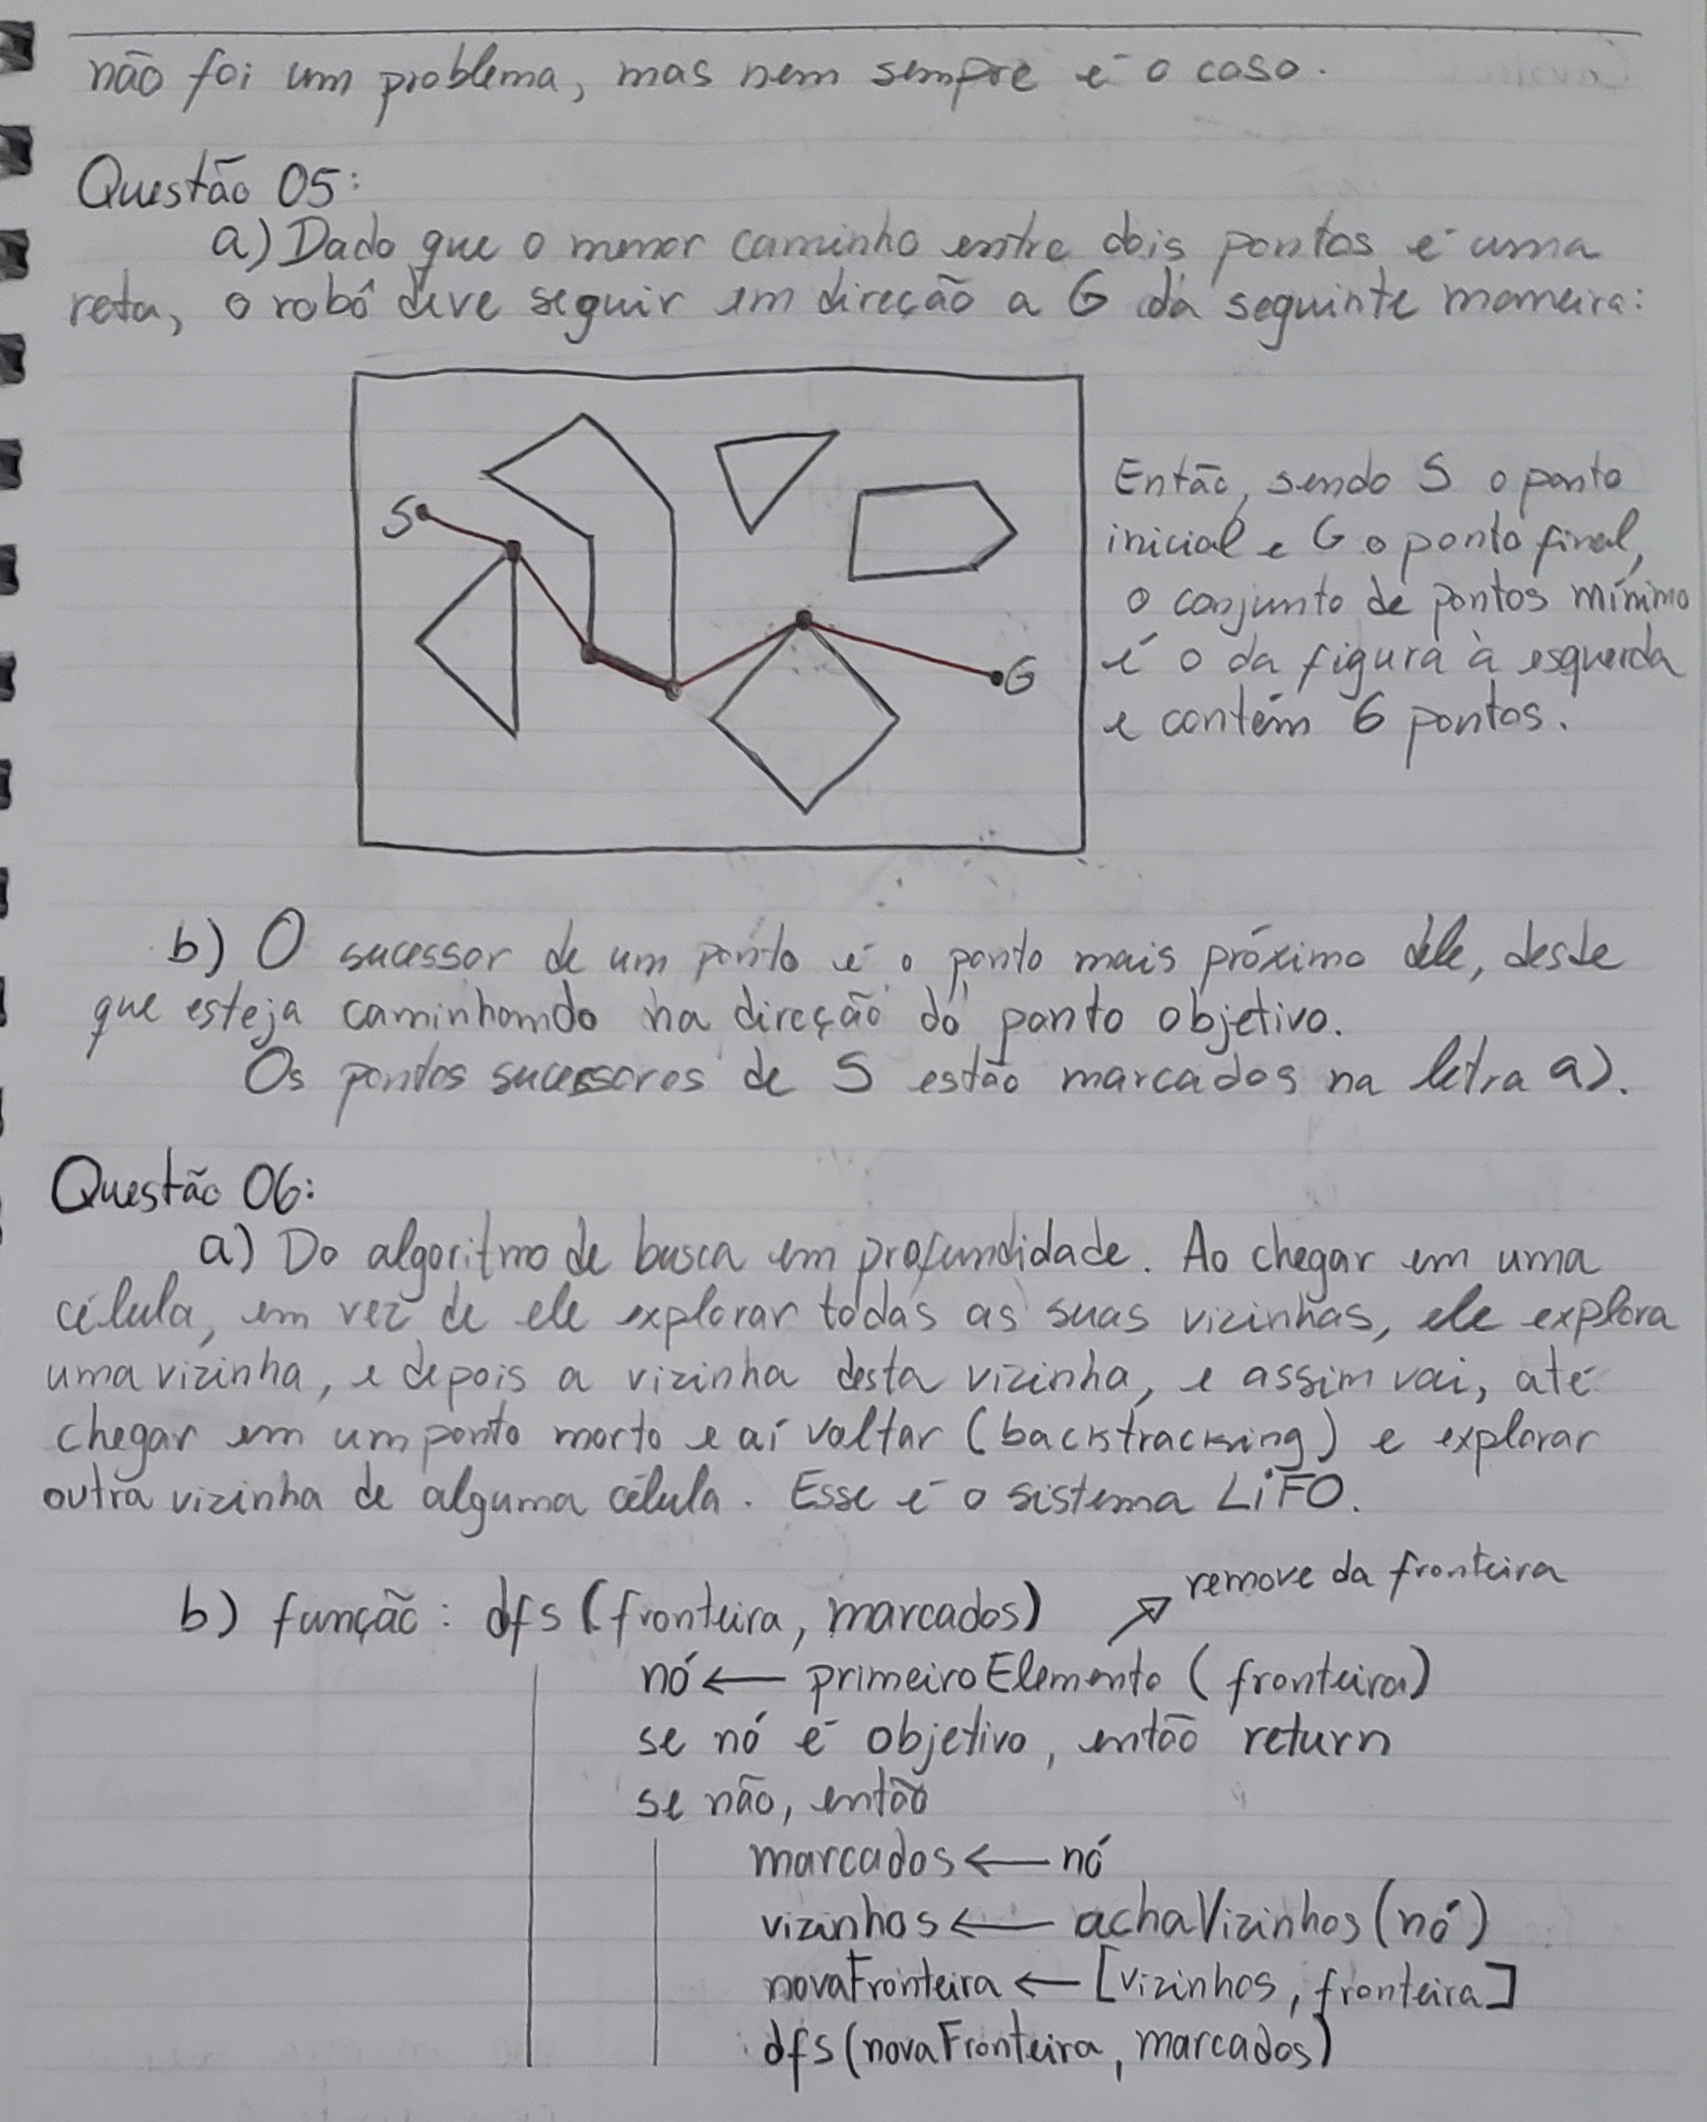 não foi um problema, mas nem sempre é o caso.
Questão 05:
a) Dado que o menor caminho entre dois pontos é uma
reta, o robô deve seguir em direção a G da seguinte maneira:
S
G
Então, sendo S o ponto
inicial e G o ponto final,
o conjunto de pontos mínimo
é o da figura à esquerda
e contém 6 pontos.
b) O sucessor de um ponto é o ponto mais próximo dele, desde
que esteja caminhando na direção do ponto objetivo.
Os pontos sucessores de S estão marcados na letra a).
Questão 06:
a) Do algoritmo de busca em profundidade. Ao chegar em uma
célula, em vez de ele explorar todas as suas vizinhas, ele explora
uma vizinha, e depois a vizinha desta vizinha, e assim vai, até
chegar em um ponto morto e aí voltar (backtracking) e explorar
outra vizinha de alguma célula. Esse é o sistema LiFO.
remove da fronteira
b) função: dfs (fronteira, marcados)
nó ← primeiroElemento (fronteira)
se nó é objetivo, então return
se não, então
marcados ← nó
vizinhos ← achaVizinhos (nó)
novaFronteira ← [vizinhos, fronteira]
dfs (novaFronteira, marcados)